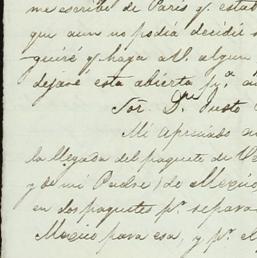 me escribe de Paris q. estab
que aun no podia decidir s
quiré y haga a V. algun
dejaré esta abierta pr.
Sor. Dn. Justo
Mi Apreciado
la llegada del paquete de Ve
y de mi Padre, de Mexico
en dos paquetes pr. separa
Mexico para esa, y pr. el